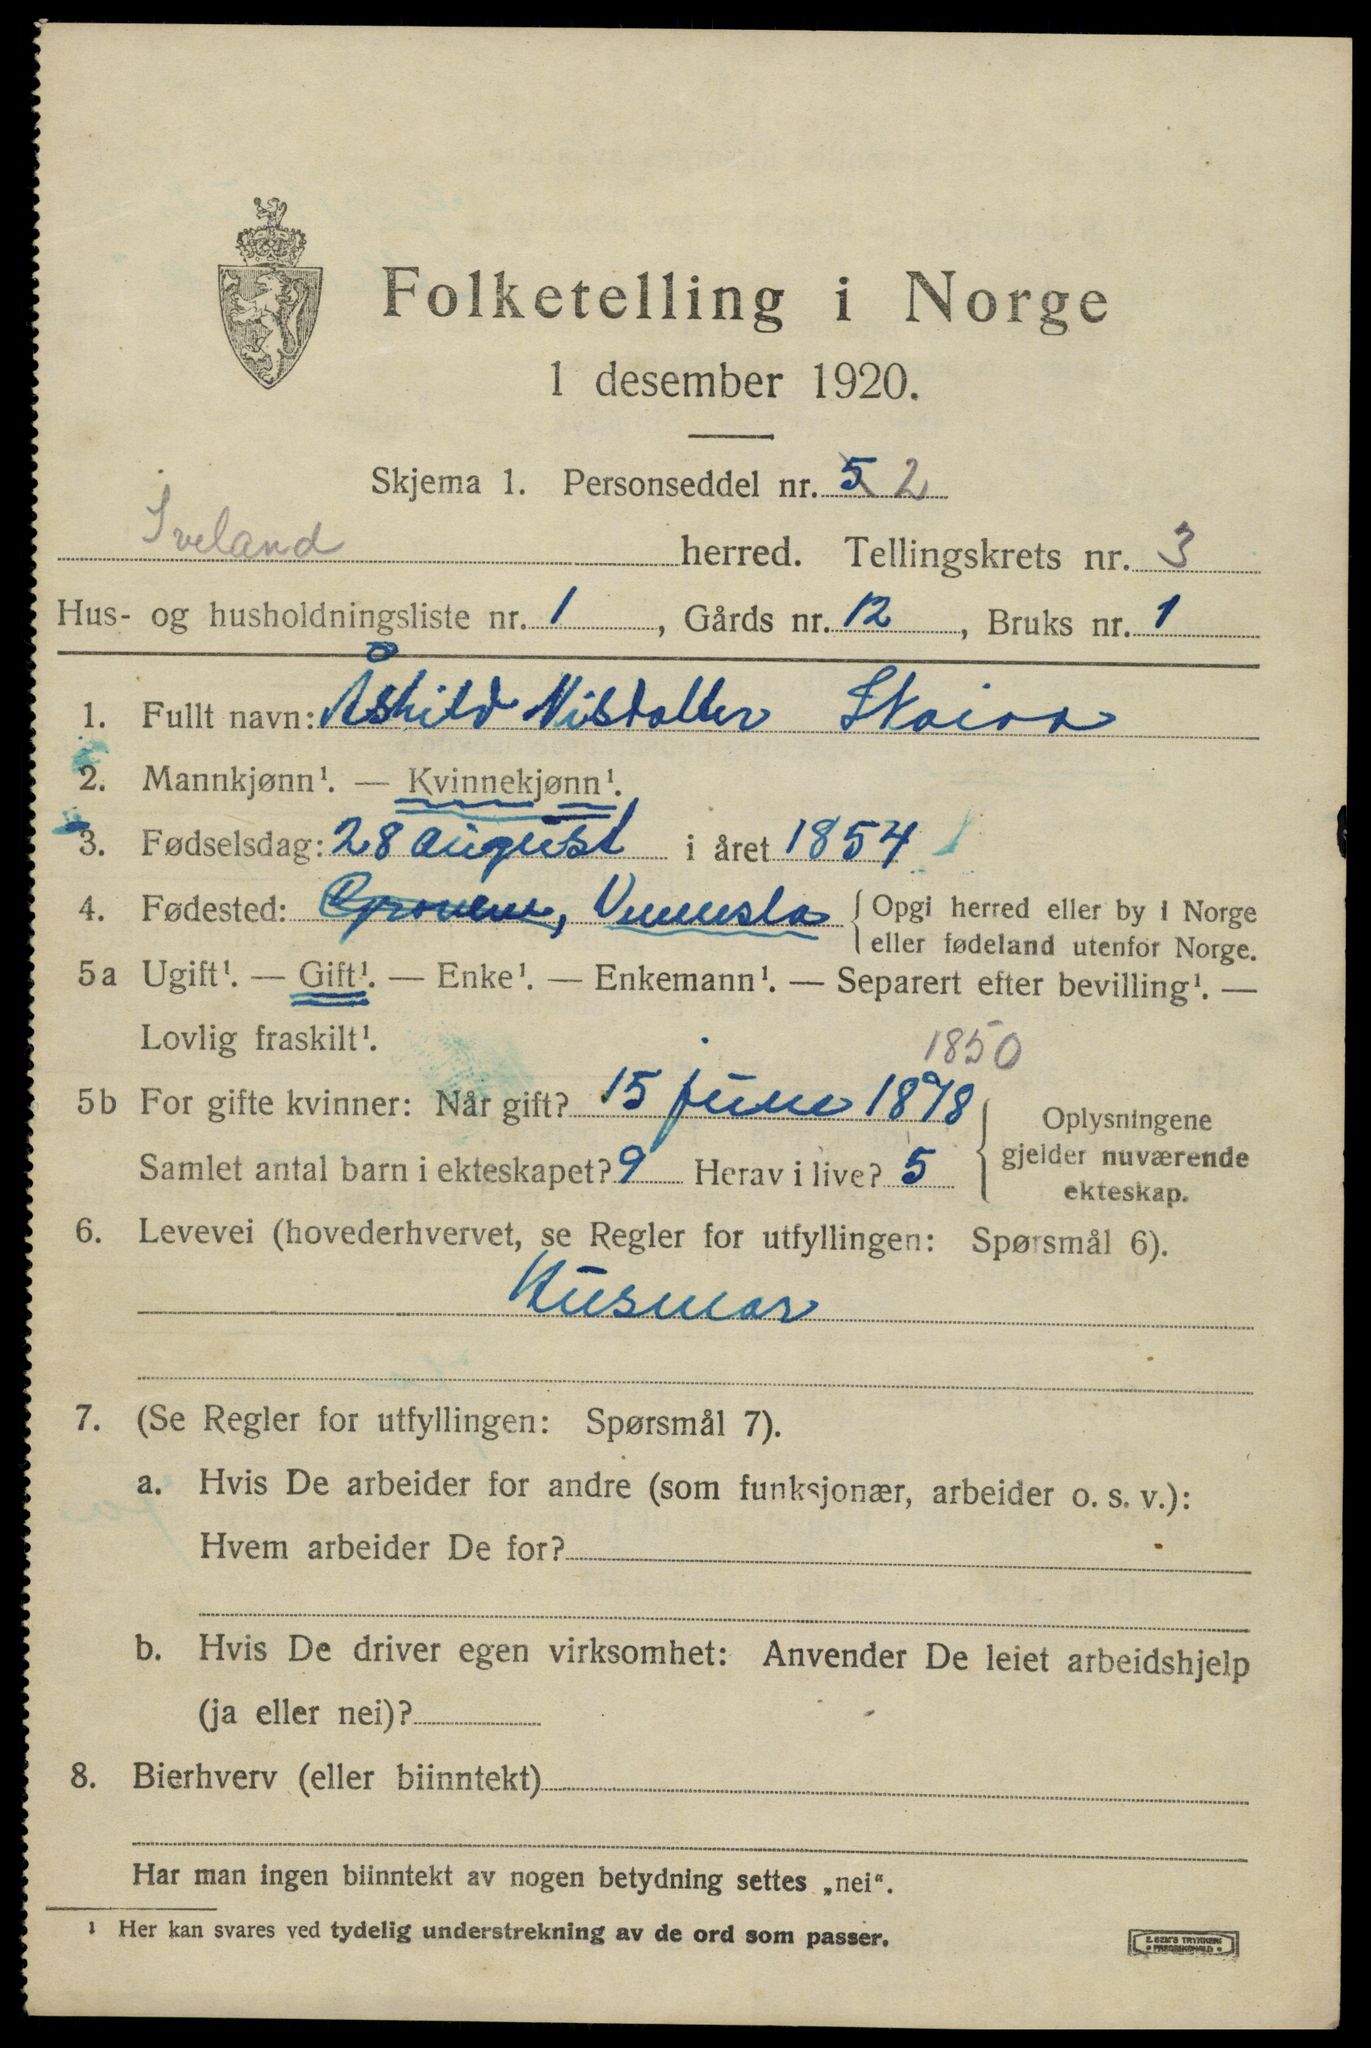 Folketelling i Norge
1 desember 1920.
Skjema 1. Personseddel nr. 5 2
Iveland herred. Tellingskrets nr. 3
Hus- og husholdningsliste nr. 1, Gårds nr. 12, Bruks nr. 1
1. Fullt navn: Åshild Nilsdatter
2. Mannkjønn¹. — Kvinnekjønn¹.
3. Fødselsdag: 28 august i året 1854
4. Fødested: Vennesla { Opgi herred eller by i Norge
eller fødeland utenfor Norge.
5a Ugift¹. — Gift¹. — Enke¹. — Enkemann¹. — Separert efter bevilling¹. —
Lovlig fraskilt¹.
1850
5b For gifte kvinner: Når gift? 15 june 1878
Samlet antal barn i ekteskapet? 9 Herav i live? 5
Oplysningene
gjelder nuværende
ekteskap.
6. Levevei (hovederhvervet, se Regler for utfyllingen: Spørsmål 6).
Husmor
7. (Se Regler for utfyllingen: Spørsmål 7).
a. Hvis De arbeider for andre (som funksjonær, arbeider o. s. v.):
Hvem arbeider De for?
b. Hvis De driver egen virksomhet: Anvender De leiet arbeidshjelp
(ja eller nei)?
8. Bierhverv (eller biinntekt)
Har man ingen biinntekt av nogen betydning settes „nei“.
¹ Her kan svares ved tydelig understrekning av de ord som passer.